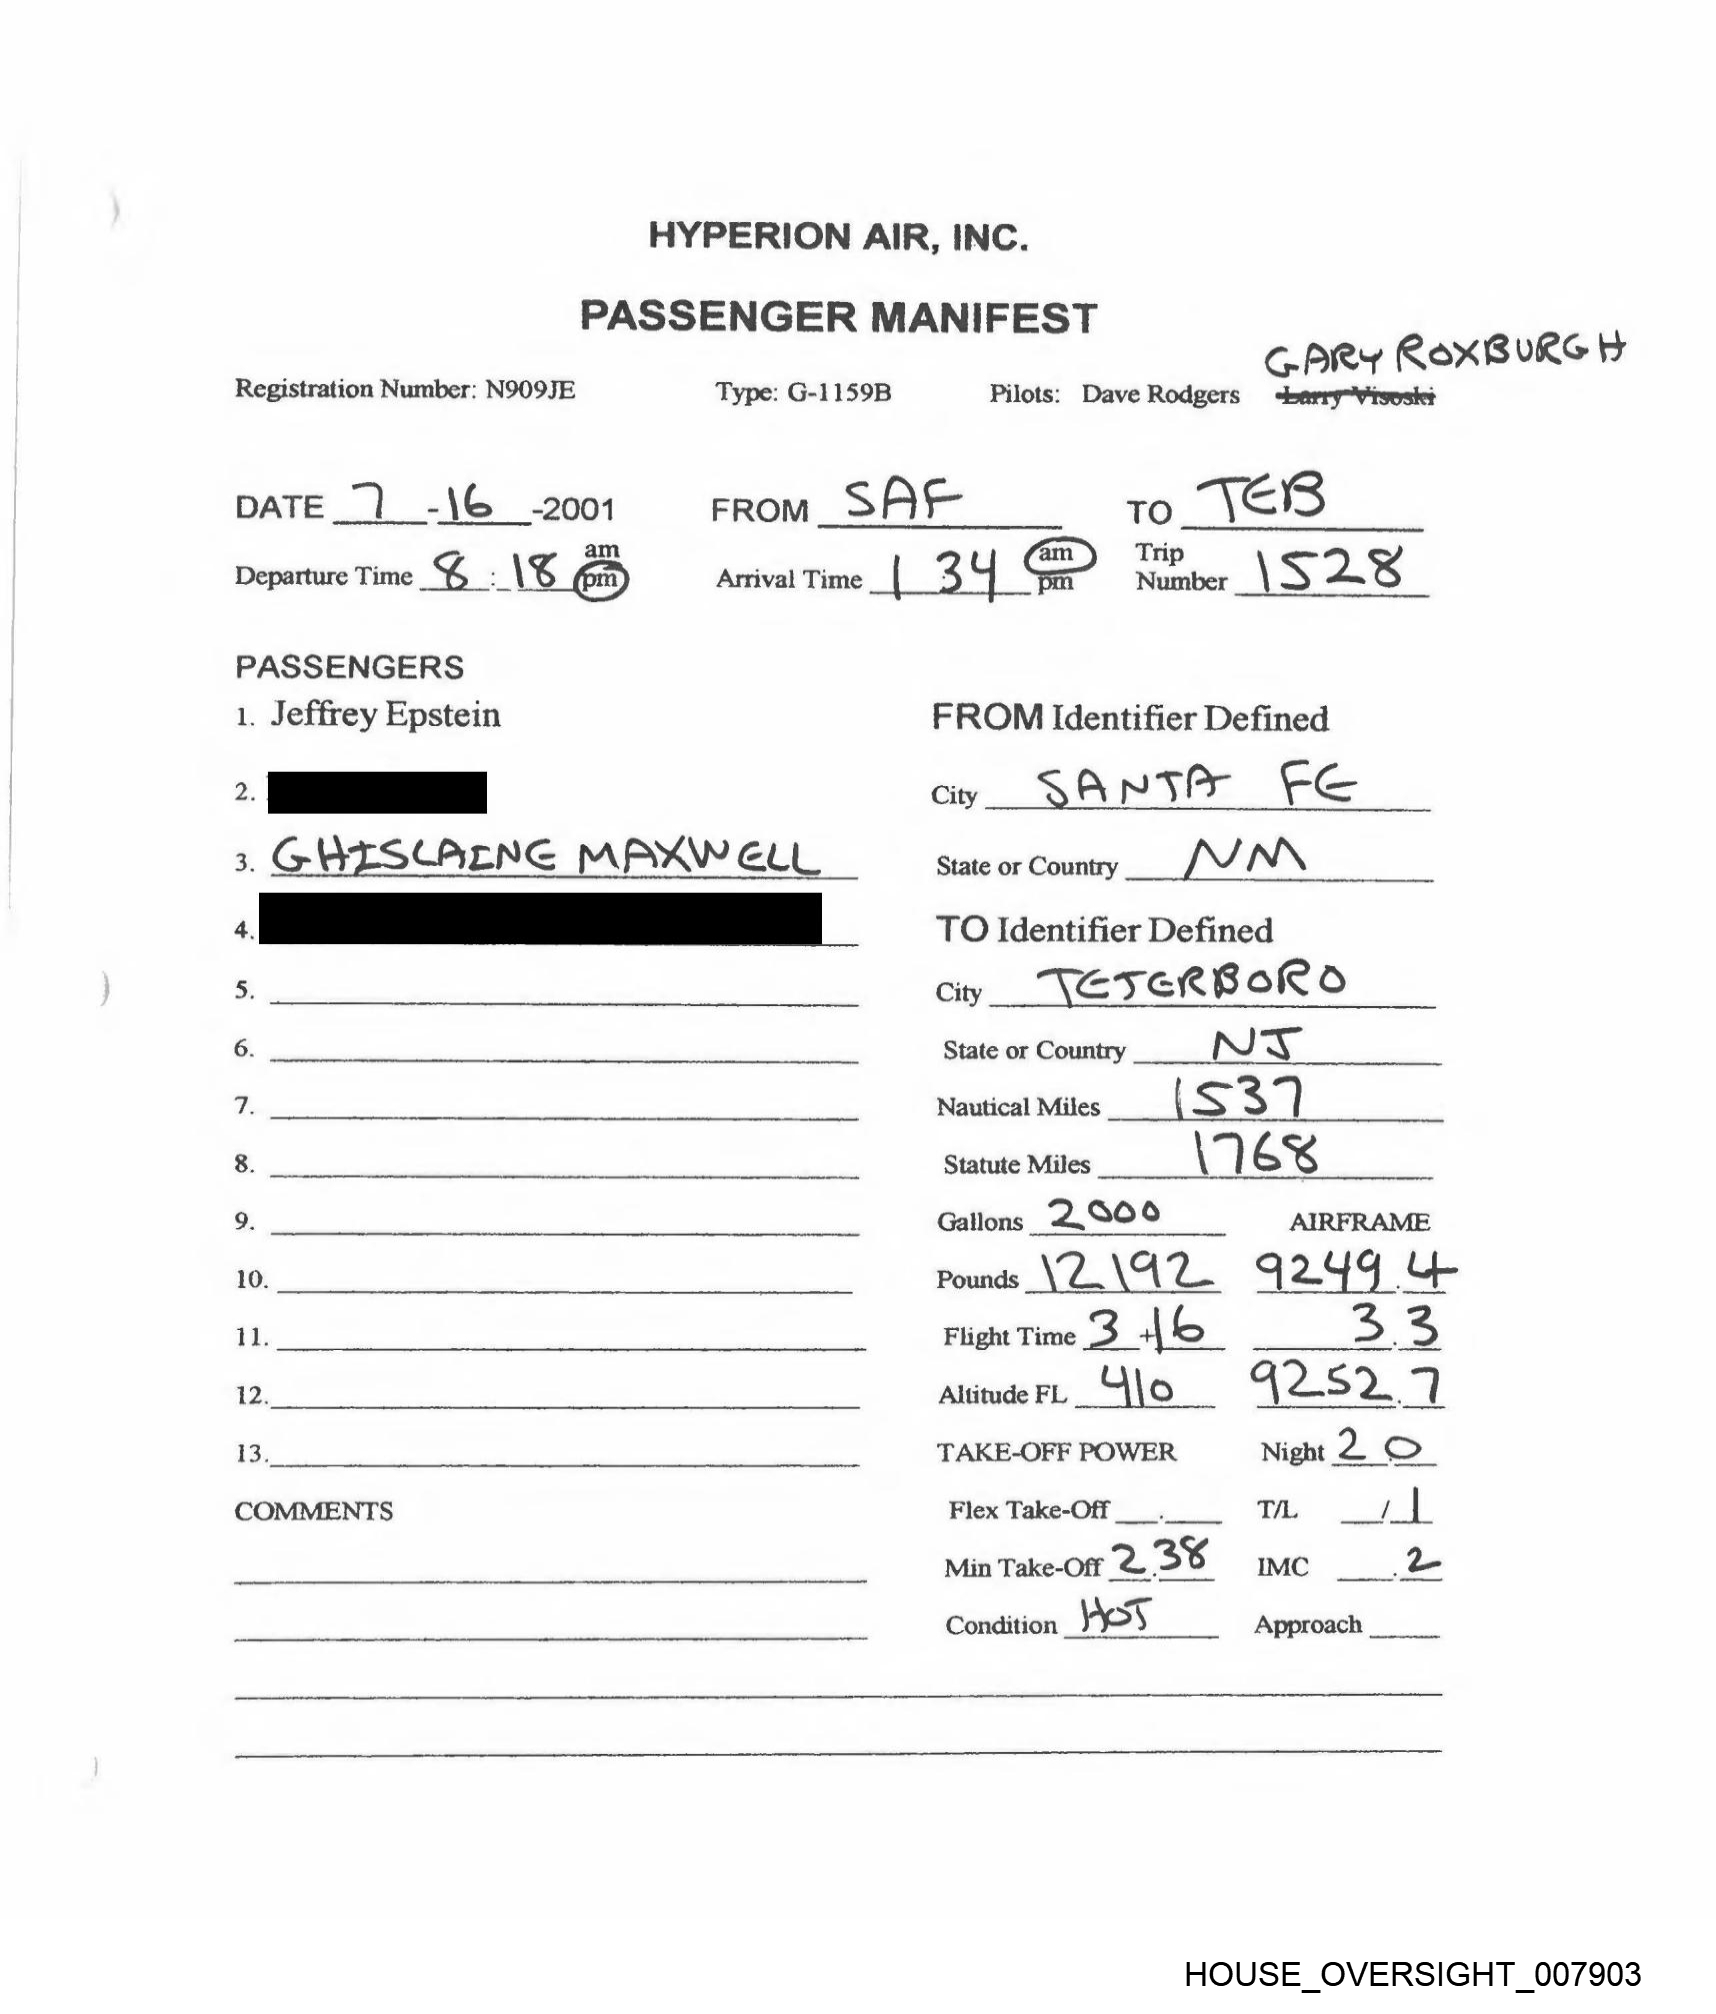 HYPERION AIR, INC.
PASSENGER MANIFEST
GARY ROXBURGH
Registration Number: N909JE Type: G-1159B Pilots: Dave Rodgers Larry Visoski
DATE 7 -16 -2001 FROM SAF TO TEB
Departure Time 8 : 18 am pm Arrival Time 1 34 am pm Trip Number 1528
PASSENGERS
1. Jeffrey Epstein FROM Identifier Defined
2. City SANTA FE
3. GHISLAINE MAXWELL State or Country NM
4. TO Identifier Defined
5. City TETERBORO
6. State or Country NJ
7. Nautical Miles 1537
8. Statute Miles 1768
9. Gallons 2000 AIRFRAME
10. Pounds 12192 9249.4
11. Flight Time 3 +16 3.3
12. Altitude FL 410 9252.7
13. TAKE-OFF POWER Night 2.0
COMMENTS Flex Take-Off . T/L / 1
Min Take-Off 2.38 IMC .2
Condition HOT Approach
HOUSE_OVERSIGHT_007903